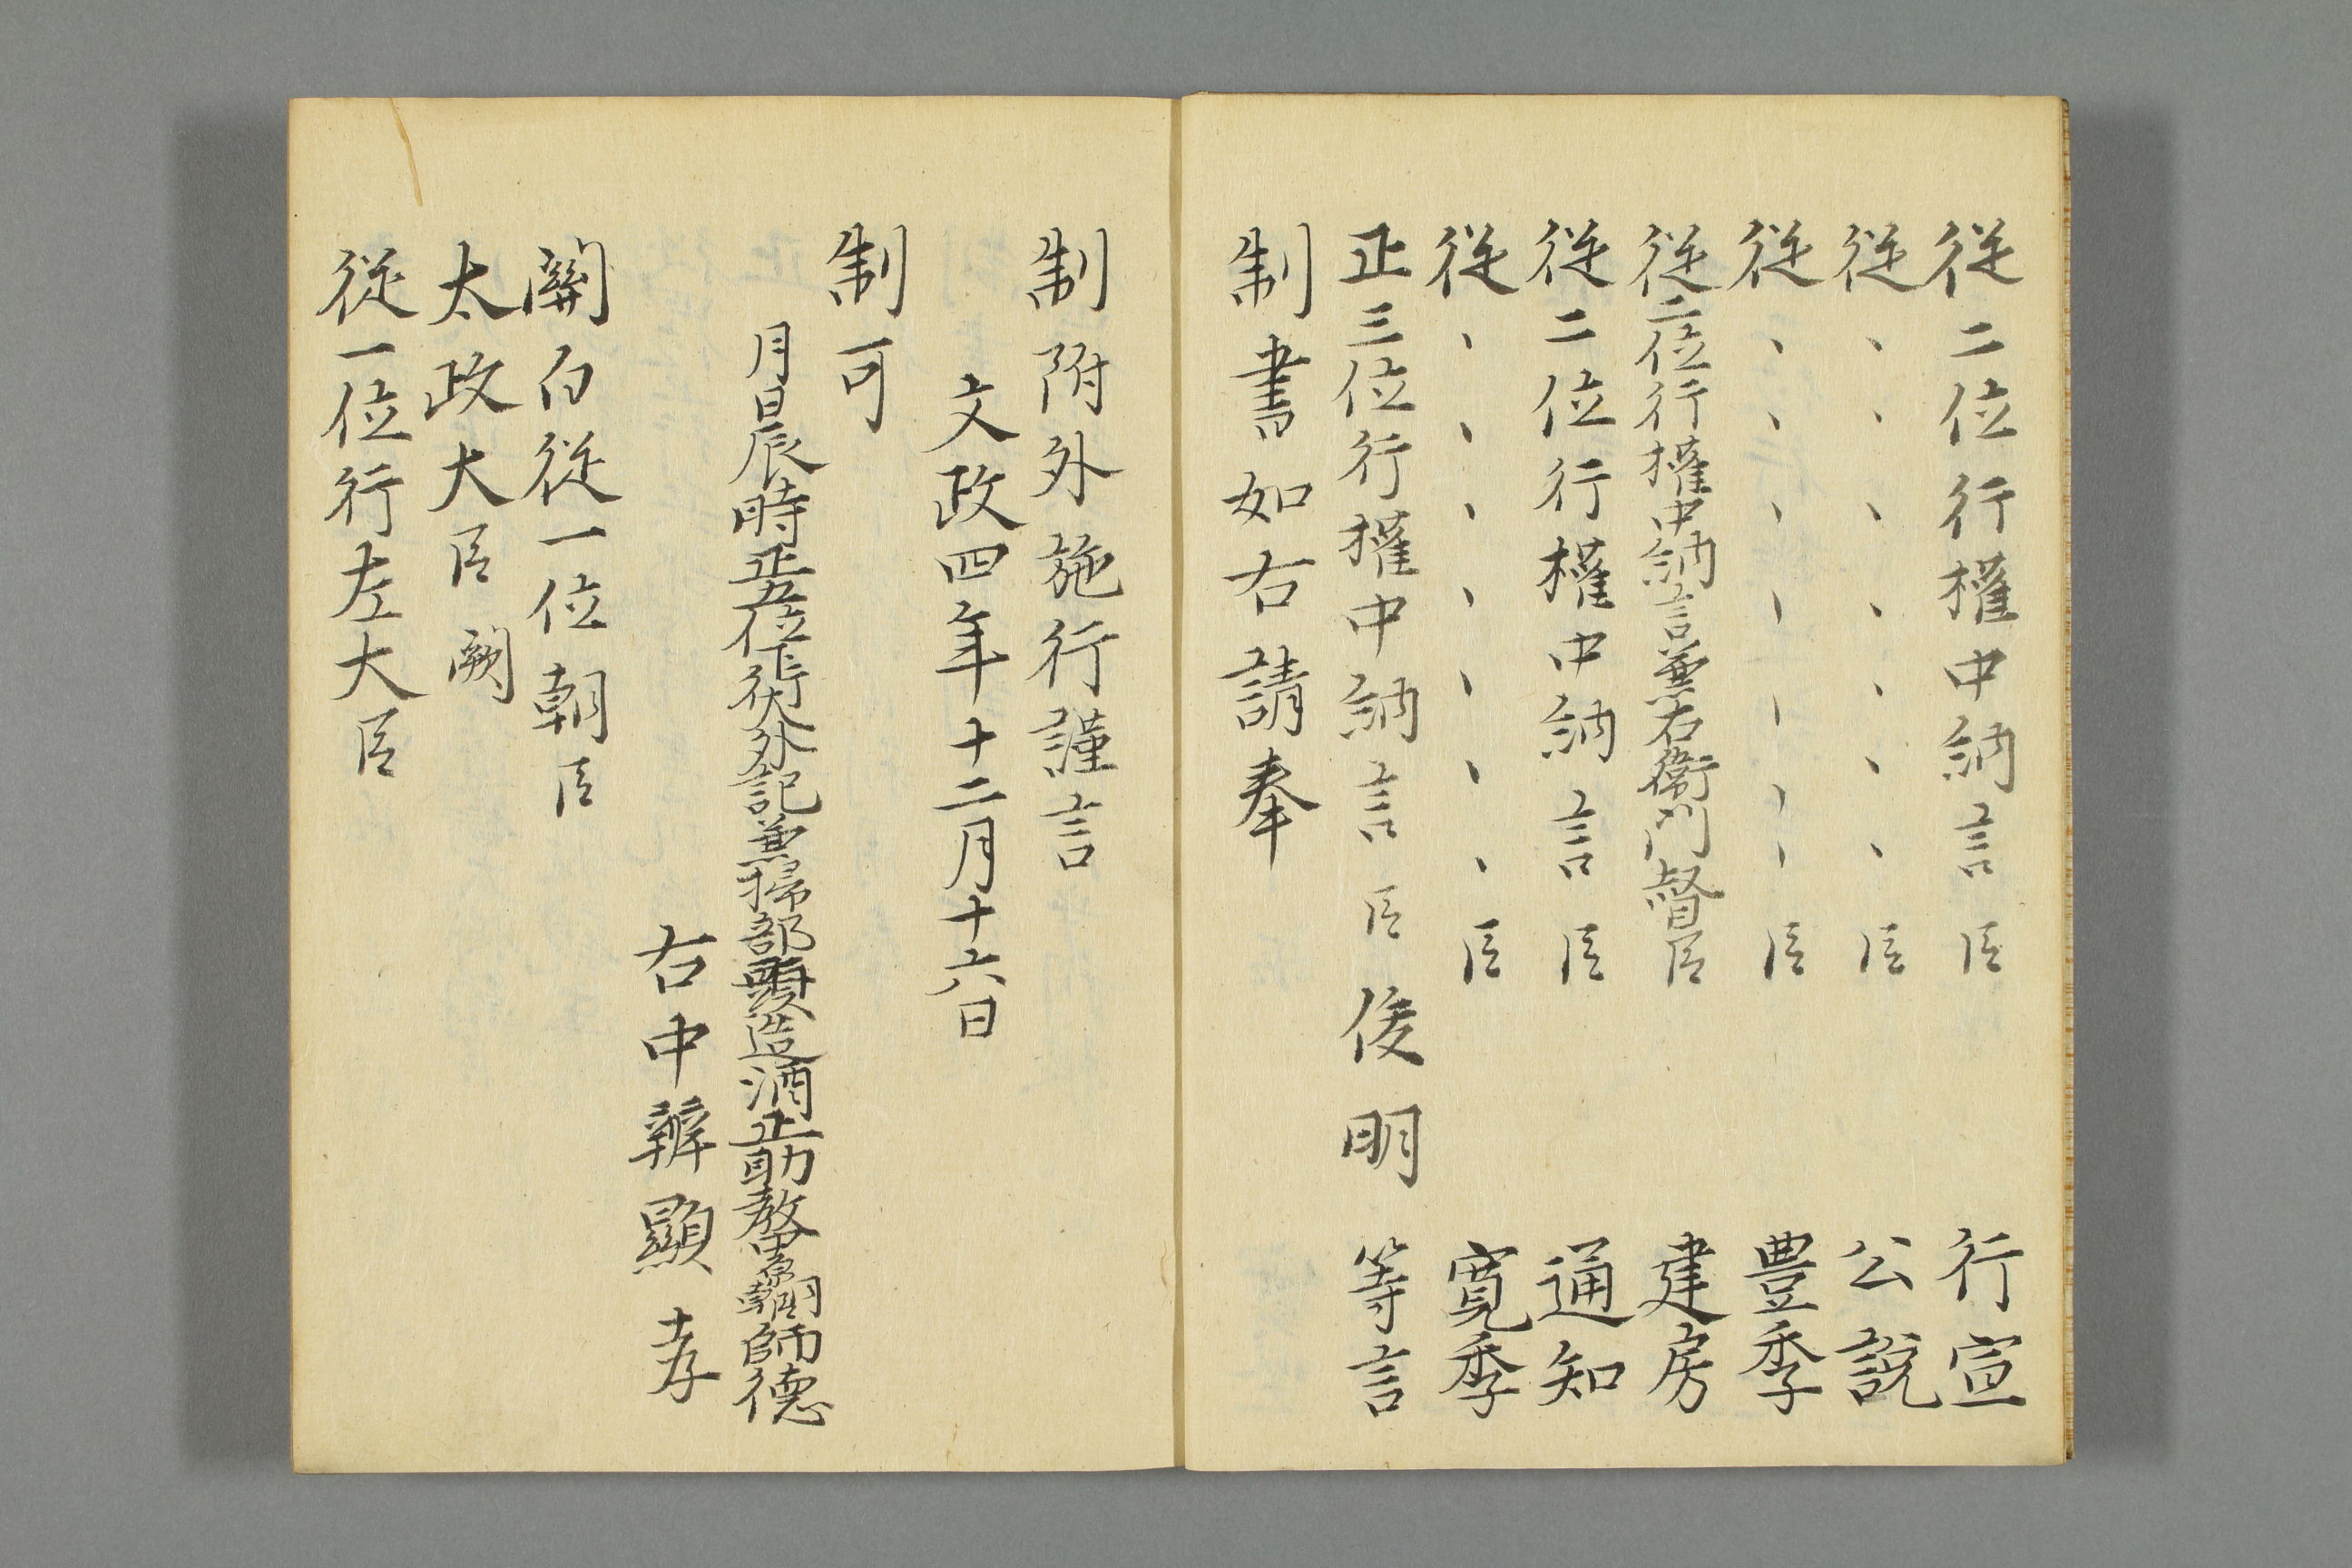 従二位行權中納言臣 行宣
従、、、、、、、臣 公説
従、、、、、、臣 豊季
従二位行權中納言兼右衛門督臣 建房
従二位行權中納言臣 通知
従、、、、、、、臣 寛季
正三位行權中納言臣俊明 等言
制書如右請奉
制附外施行謹言
文政四年十二月十六日
制可
月日辰時正五位下行大外記兼掃部頭造酒正助教中原朝臣師德
右中辨顯孝
關白従一位朝臣
太政大臣闕
従一位行左大臣